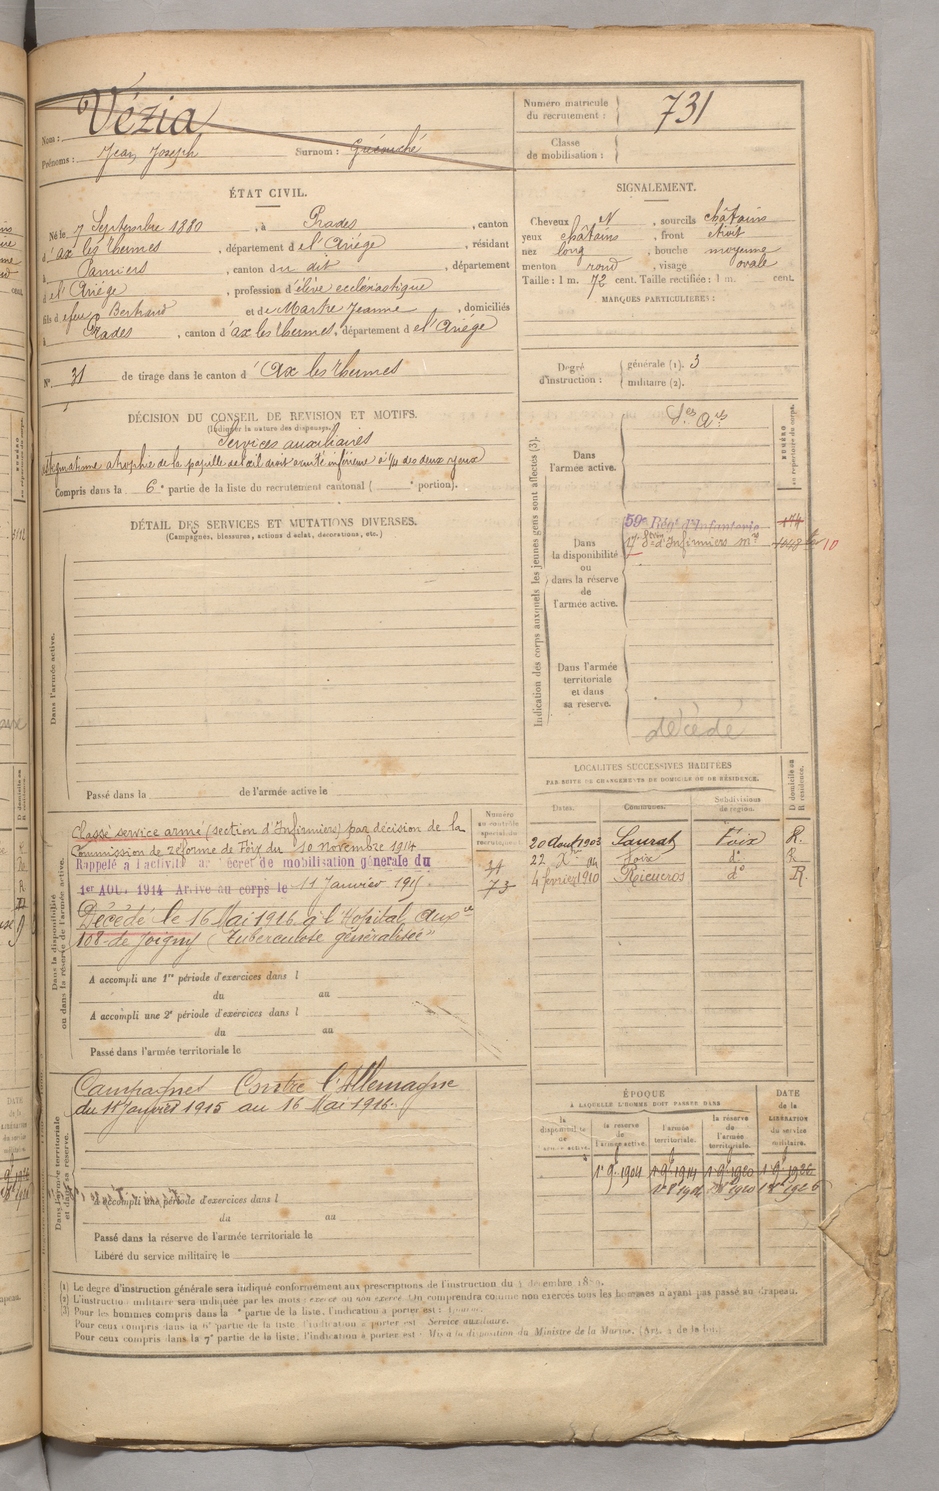 Nom : Vézia
Prénoms : Jean Joseph Surnom :
Numéro matricule du recrutement : 731
Classe de mobilisation :
ÉTAT CIVIL.
Né le 7 Septembre 1880, à Prades, canton
d'ax les thermes, département de l'Ariège, résidant
à Pamiers, canton du dit, département
de l'Ariège, profession d'élève ecclésiastique
fils de feu Bertrand et de Marke Jeanne, domiciliés
à Prades, canton d'ax les thermes, département de l'Ariège
N° 31 de tirage dans le canton d'Ax les thermes
SIGNALEMENT.
Cheveux N, sourcils châtains
yeux châtains, front étroit
nez long, bouche moyenne
menton rond, visage ovale
Taille : 1 m. 72 cent. Taille rectifiée : 1 m. cent.
MARQUES PARTICULIÈRES :
Degré d'instruction : générale (1). 3
militaire (2).
DÉCISION DU CONSEIL DE REVISION ET MOTIFS.
(Indiquer la nature des dispenses.)
Services auxiliaires
astigmatisme atrophie de la papille de l'œil droit acuité inférieure à 1/4 des deux yeux
Compris dans la 6e partie de la liste du recrutement cantonal ( e portion).
DÉTAIL DES SERVICES ET MUTATIONS DIVERSES.
(Campagnes, blessures, actions d'éclat, décorations, etc.)
Dans l'armée active.
Passé dans la de l'armée active le
Indication des corps auxquels les jeunes gens sont affectés (3).
NUMÉRO au répertoire du corps.
Dans l'armée active.
Ses Ares
Dans la disponibilité ou dans la réserve de l'armée active.
59e Régt d'Infanterie 174
17e Son d'Infirmiers mres
Dans l'armée territoriale et dans sa réserve.
décédé
LOCALITÉS SUCCESSIVES HABITÉES
PAR SUITE DE CHANGEMENTS DE DOMICILE OU DE RÉSIDENCE.
Dates. Communes. Subdivisions de région. D domicile ou R résidence.
20 Aout 1903 Saurat Foix R.
22 Xe Foix do R
4 février 1910 do R.
Dans la disponibilité ou dans la réserve de l'armée active.
Numéro au contrôle spécial du recrutement
Classé service armé (section d'Infirmiers) par décision de la
Commission de réforme de Foix du 10 novembre 1914
Rappelé à l'activité par décret de mobilisation générale du
1er AOUT 1914 Arrivé au corps le 11 Janvier 1915.
Décédé le 16 Mai 1916 à l'Hopital Auxre
108 de Joigny "Tuberculose généralisée"
34
73
A accompli une 1re période d'exercices dans l
du au
A accompli une 2e période d'exercices dans l
du au
Passé dans l'armée territoriale le
Dans l'armée territoriale et dans sa réserve.
Campagnes Contre l'Allemagne
du 11 Janvier 1915 au 16 Mai 1916.
A accompli une période d'exercices dans l
du au
Passé dans la réserve de l'armée territoriale le
Libéré du service militaire le
ÉPOQUE
A LAQUELLE L'HOMME DOIT PASSER DANS
DATE de la LIBÉRATION du service militaire.
la disponibilité de l'armée active. la réserve de l'armée active. l'armée territoriale. la réserve de l'armée territoriale.
1er 9bre 1904 1er 9bre 1914 1er 9bre 1920 1er 9bre 1926
(1) Le degré d'instruction générale sera indiqué conformément aux prescriptions de l'instruction du
(2) L'instruction militaire sera indiquée par les mots : exercé ou non exercé. On comprendra comme non exercés tous les hommes n'ayant pas passé au drapeau.
(3) Pour les hommes compris dans la e partie de la liste, l'indication à porter est :
Pour ceux compris dans la 6e partie de la liste, l'indication à porter est : Service auxiliaire.
Pour ceux compris dans la 7e partie de la liste, l'indication à porter est : Mis à la disposition du Ministre de la Marine.